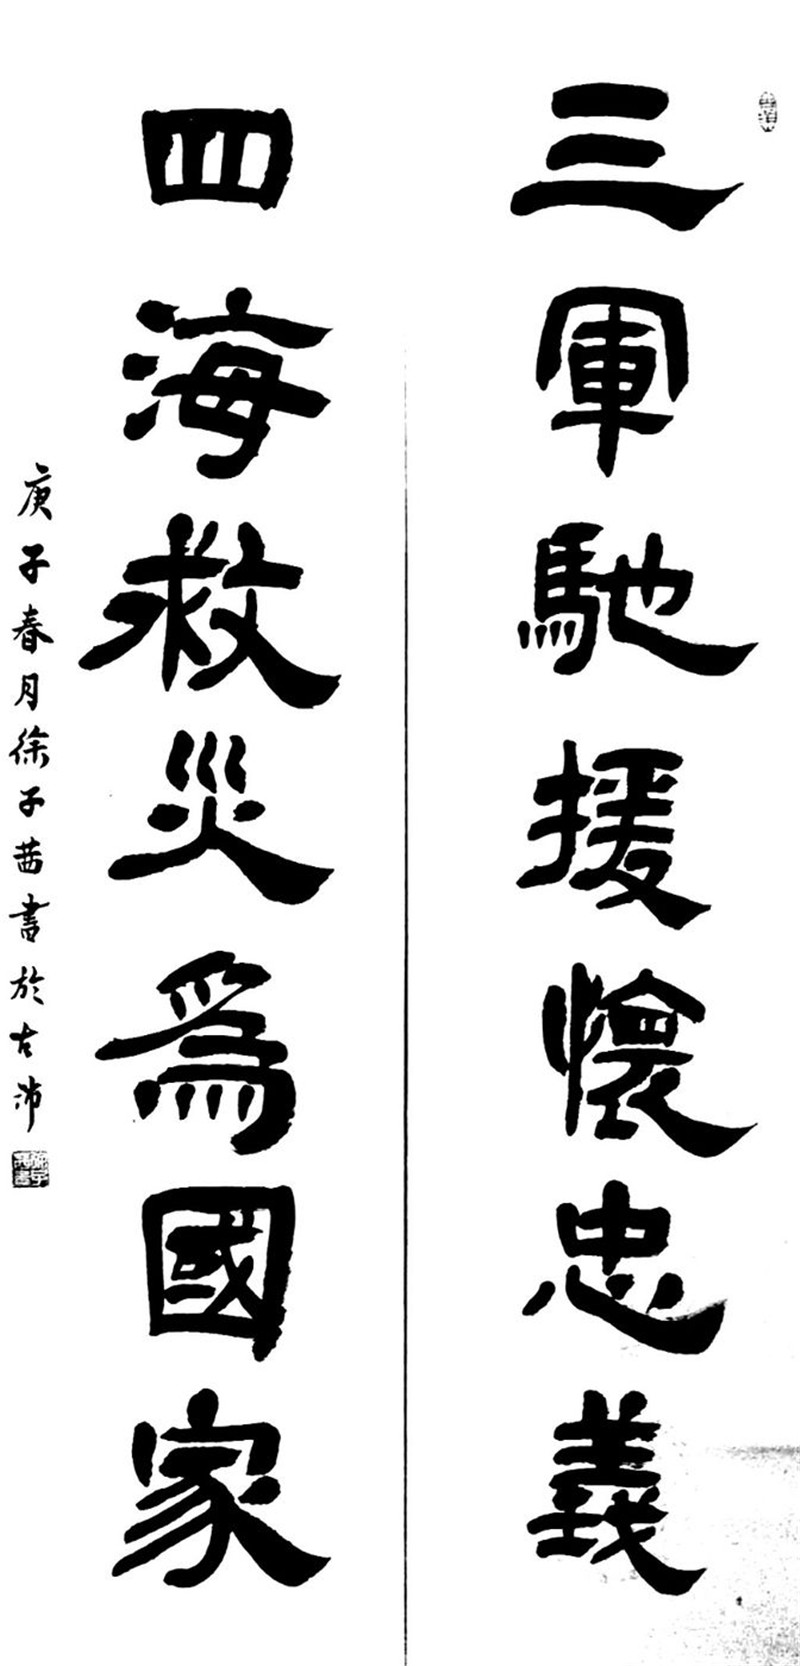 三軍馳援懷忠義
四海救災為國家
庚子春月徐子茜書於古沛